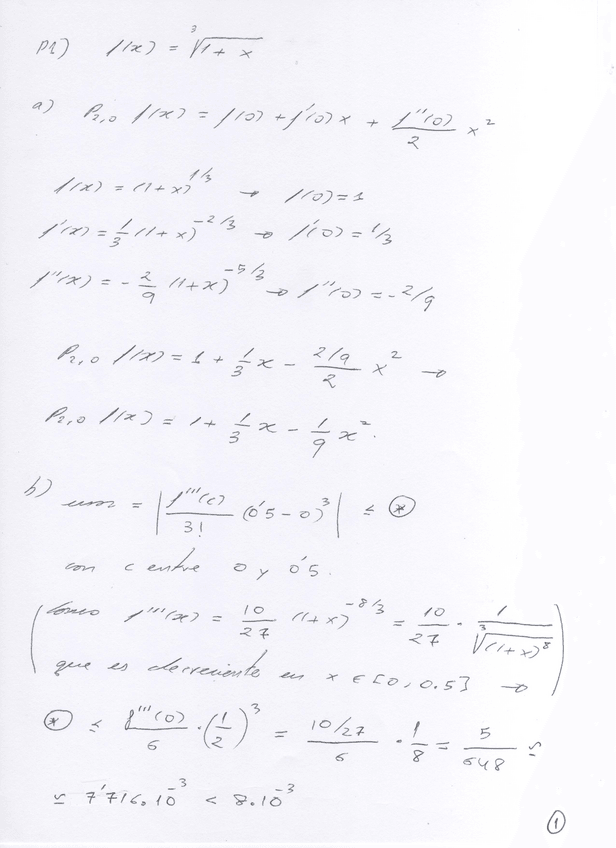 P1) f(x) = ∛(1 + x)
a) P₂,₀ f(x) = f(0) + f'(0) x + f''(0)/2 x²
f(x) = (1 + x)^(1/3) → f(0) = 1
f'(x) = 1/3 (1 + x)^(-2/3) → f'(0) = 1/3
f''(x) = - 2/9 (1+x)^(-5/3) → f''(0) = -2/9
P₂,₀ f(x) = 1 + 1/3 x - (2/9)/2 x² →
P₂,₀ f(x) = 1 + 1/3 x - 1/9 x².
b) error = | f'''(c)/3! (0'5 - 0)³ | ≤ ⊛
con c entre 0 y 0'5.
(como f'''(x) = 10/27 (1+x)^(-8/3) = 10/27 · 1/∛((1+x)⁸)
que es decreciente en x ∈ [0, 0.5]) →
⊛ ≤ f'''(0)/6 · (1/2)³ = (10/27)/6 · 1/8 = 5/648 ≃
≃ 7'716.10⁻³ < 8.10⁻³
①